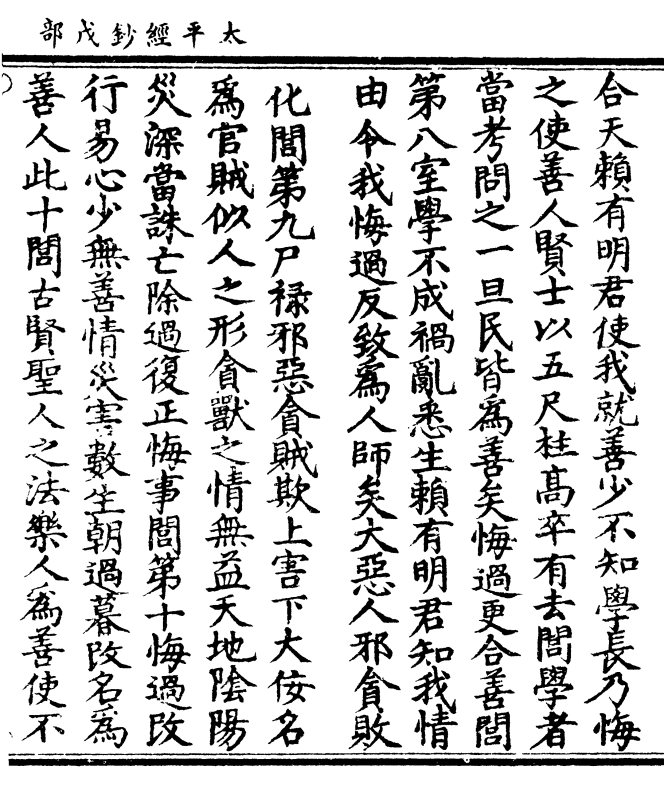 太平經鈔戊部
合天賴有明君使我就善少不知學長乃悔
之使善人賢士以五尺柱高卒有去閭學者
當考問之一旦民皆爲善矣悔過更合善閭
第八室學不成禍亂悉生賴有明君知我情
由令我悔過反致爲人師矣大惡人邪貪敗
化閭第九尸祿邪惡貪賊欺上害下大佞名
爲官賊似人之形貪獸之情無益天地陰陽
災深當誅亡除過復正悔事閭第十悔過改
行易心少無善情災害數生朝過暮改名爲
善人此十閭古賢聖人之法樂人爲善使不